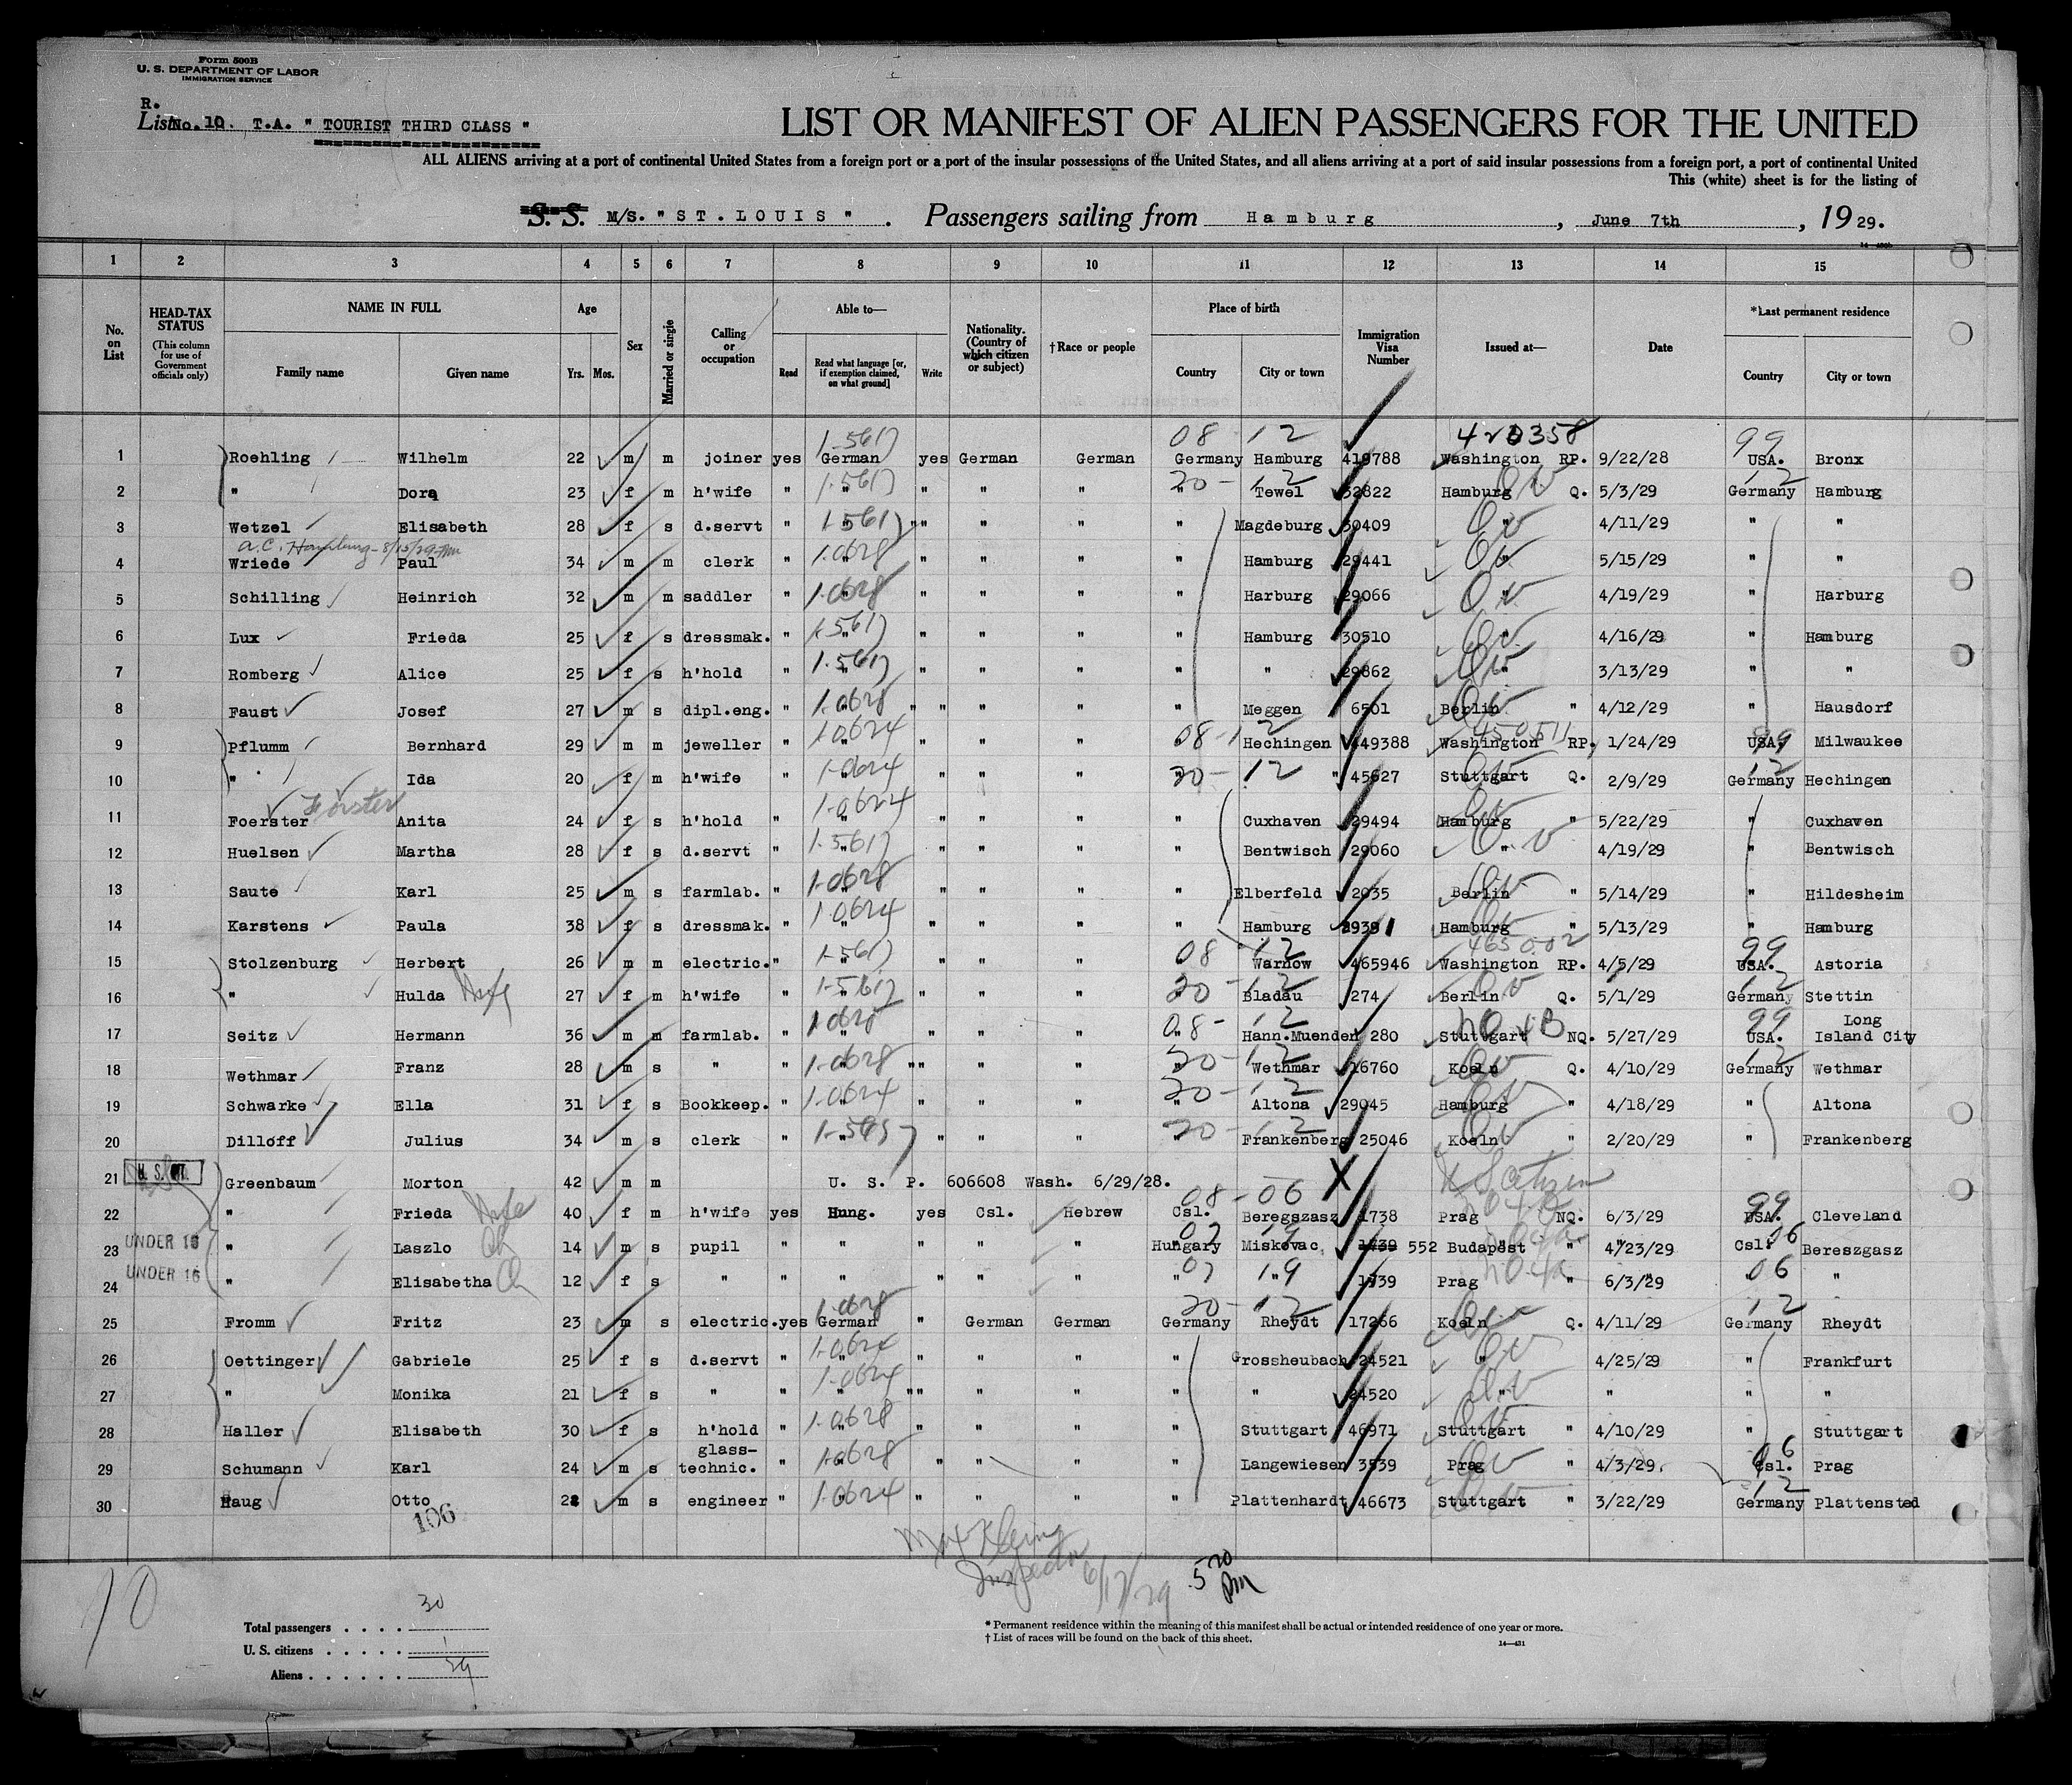 Form 500B
U. S. DEPARTMENT OF LABOR
IMMIGRATION SERVICE
R.
List No. 10. T.A. " TOURIST THIRD CLASS "
LIST OR MANIFEST OF ALIEN PASSENGERS FOR THE UNITED
ALL ALIENS arriving at a port of continental United States from a foreign port or a port of the insular possessions of the United States, and all aliens arriving at a port of said insular possessions from a foreign port, a port of continental United
This (white) sheet is for the listing of
S. S. M/S. " ST. LOUIS " . Passengers sailing from Hamburg , June 7th , 1929.
1 2 3 4 5 6 7 8 9 10 11 12 13 14 15
No. on List
HEAD-TAX STATUS (This column for use of Government officials only)
NAME IN FULL
Family name Given name
Age
Yrs. Mos.
Sex
Married or single
Calling or occupation
Able to—
Read Read what language [or, if exemption claimed, on what ground] Write
Nationality. (Country of which citizen or subject)
†Race or people
Place of birth
Country City or town
Immigration Visa Number
Issued at—
Date
*Last permanent residence
Country City or town
1-5617 08 12 420358 99
1 Roehling Wilhelm 22 m m joiner yes German yes German German Germany Hamburg 419788 Washington RP. 9/22/28 USA. Bronx
1-5617 20 - 12 12
2 " Dora 23 f m h'wife " " " " " " Tewel 32822 Hamburg Q. 5/3/29 Germany Hamburg
1-5617
3 Wetzel Elisabeth 28 f s d.servt " " " " " " " Magdeburg 30409 " 4/11/29 " "
a.c. Hamburg - 8/15/29
1-0628
4 Wriede Paul 34 m m clerk " " " " " " Hamburg 29441 " 5/15/29 " "
1-0628
5 Schilling Heinrich 32 m m saddler " " " " " " Harburg 29066 " 4/19/29 " Harburg
1-5617
6 Lux Frieda 25 f s dressmak. " " " " " " Hamburg 30510 " 4/16/29 " Hamburg
1-5617
7 Romberg Alice 25 f s h'hold " " " " " " " 29862 " 3/13/29 " "
1-0628
8 Faust Josef 27 m s dipl.eng. " " " " " " " Meggen 6501 Berlin " 4/12/29 " Hausdorf
1-0624 08-12 450511 99
9 Pflumm Bernhard 29 m m jeweller " " " " " " Hechingen 449388 Washington RP. 1/24/29 USA. Milwaukee
1-0624 20 - 12 12
10 " Ida 20 f m h'wife " " " " " " " 45627 Stuttgart Q. 2/9/29 Germany Hechingen
Forster 1-0624
11 Foerster Anita 24 f s h'hold " " " " " " Cuxhaven 29494 Hamburg " 5/22/29 " Cuxhaven
1-5617
12 Huelsen Martha 28 f s d.servt " " " " " " Bentwisch 29060 " 4/19/29 " Bentwisch
1-0628
13 Saute Karl 25 m s farmlab. " " " " " " Elberfeld 2035 Berlin " 5/14/29 " Hildesheim
1-0624
14 Karstens Paula 38 f s dressmak. " " " " " " Hamburg 29391 Hamburg " 5/13/29 " Hamburg
1-5617 08 12 465002 99
15 Stolzenburg Herbert 26 m m electric. " " " " " Warnow 465946 Washington RP. 4/5/29 USA. Astoria
1-5617 20 - 12 12
16 " Hulda Wife 27 f m h'wife " " " " " Bladau 274 Berlin Q. 5/1/29 Germany Stettin
1-0628 08 - 12 99 Long
17 Seitz Hermann 36 m m farmlab. " " " " " " Hann.Muenden 280 Stuttgart NQ. 5/27/29 USA. Island City
1-0628 20 - 12 12
18 Wethmar Franz 28 m s " " " " " " " " Wethmar 16760 Koeln Q. 4/10/29 Germany Wethmar
1-0624 20 - 12
19 Schwarke Ella 31 f s Bookkeep. " " " " " " Altona 29045 Hamburg " 4/18/29 " Altona
20 - 12
20 Dilloff Julius 34 m s clerk " " " " " " Frankenberg 25046 Koeln " 2/20/29 " Frankenberg
U. S. CIT.
21 Greenbaum Morton 42 m m U. S. P. 606608 Wash. 6/29/28. X U S Citizen
08 - 06 99
22 " Frieda Wife 40 f m h'wife yes Hung. yes Csl. Hebrew Csl. Beregszasz 1738 Prag NQ. 6/3/29 USA. Cleveland
07 19 06
UNDER 16
23 " Laszlo Ch 14 m s pupil " " " " " Hungary Miskovac 1739 552 Budapest " 4/23/29 Csl. Bereszgasz
UNDER 16 07 19 06
24 " Elisabetha Ch 12 f s " " " " " " " " 1739 Prag " 6/3/29 "
1-0628 20 - 12 12
25 Fromm Fritz 23 m s electric. yes German " German German Germany Rheydt 17266 Koeln Q. 4/11/29 Germany Rheydt
1-0624
26 Oettinger Gabriele 25 f s d.servt " " " " " " Grossheubach 24521 " 4/25/29 " Frankfurt
1-0624
27 " Monika 21 f s " " " " " " " " " 24520 " " " "
1-0628
28 Haller Elisabeth 30 f s h'hold " " " " " " Stuttgart 46971 Stuttgart " 4/10/29 " Stuttgart
1-0628 06
29 Schumann Karl 24 m s glass-technic. " " " " " " Langewiesen 3539 Prag " 4/3/29. Csl. Prag
1-0624 12
30 Haug Otto 28 m s engineer " " " " " " Plattenhardt 46673 Stuttgart " 3/22/29 Germany Plattensted
106
Inspector 6/17/29 5 20 pm
10
Total passengers . . . . 30
U. S. citizens . . . . . 1
Aliens . . . . . . 29
* Permanent residence within the meaning of this manifest shall be actual or intended residence of one year or more.
† List of races will be found on the back of this sheet.
14—431